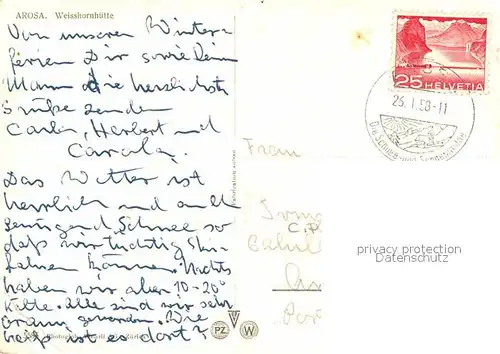 AROSA. Weisshornhütte
Von unseren Winter-
ferien Dir sowie dein
Mann die herzlichste
Grüße senden
Carla, Herbert und
Carola.
Das Wetter ist
herrlich und auch
genügend Schnee so
daß wir tüchtig Ski-
fahren können. Nachts
haben wir aber 10-20°
Kälte. Alle sind wir sehr
braun geworden. Wie
heiß ist es dort?
25 HELVETIA
25. I. 58-11
Frau
C.P.
privacy protection
Datenschutz
PZ
W